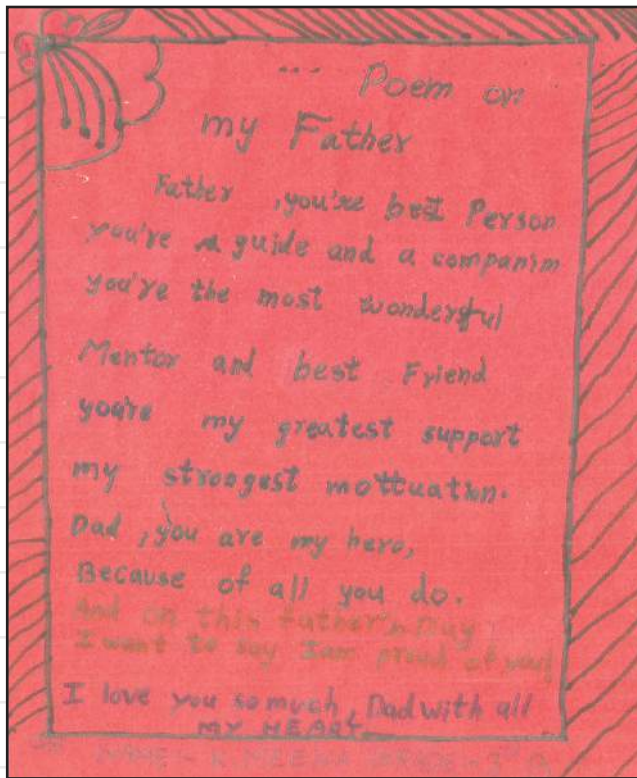 --- Poem on
my Father
Father , you're best Person
you're a guide and a companim
you're the most wonderful
Mentor and best Friend
you're my greatest support
my stroogest mottuation.
Dad , you are my hero,
Because of all you do.
And on this father's Day
I want to say I am proud of you!
I love you so much, Dad with all
MY HEART
NAME -